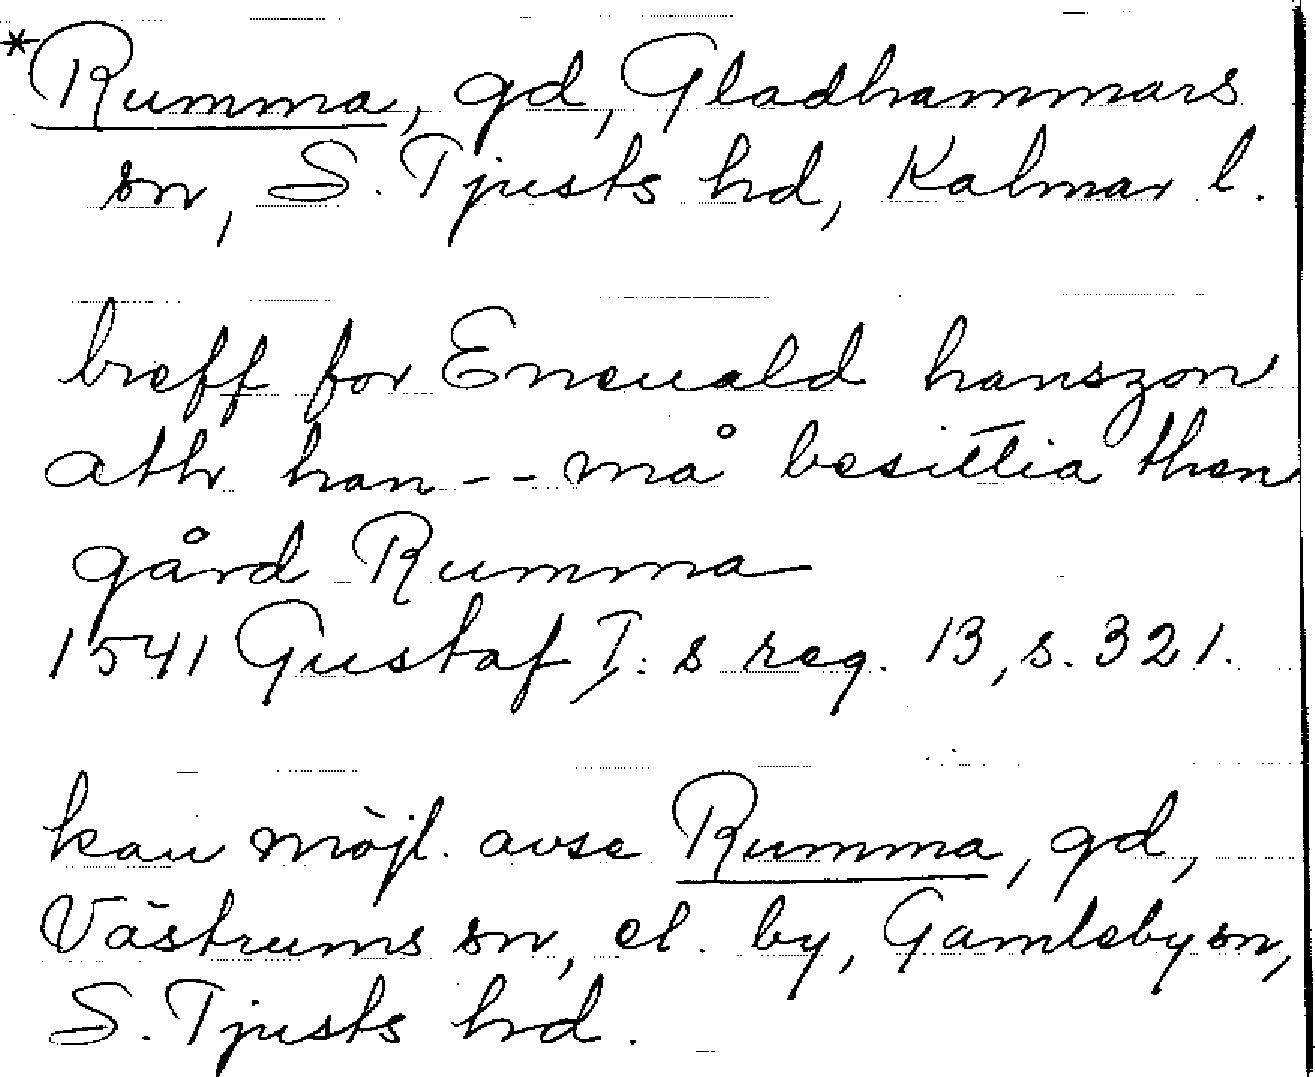 *Rumma, gd, Gladhammars
sn, S. Tjusts hd, Kalmar l.
breff for Eneuald hanszon
ath han -- må besittia then
gård Rumma
1541 Gustaf I: s reg. 13, s. 321.
kan möjl. avse Rumma, gd,
Västrums sn, el. by, Gamleby sn,
S. Tjusts hd.